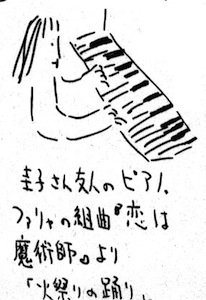 圭子さん友人のピアノ、
ファリャの組曲『恋は
魔術師』より
「火祭りの踊り」